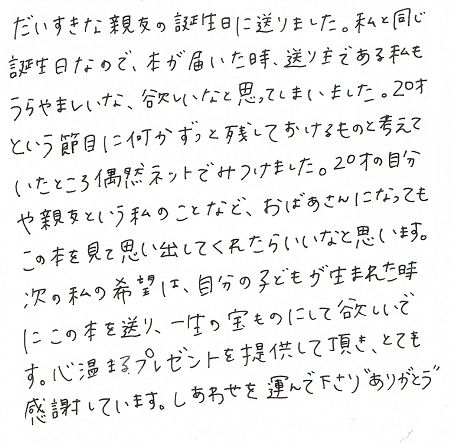 だいすきな親友の誕生日に送りました。私と同じ
誕生日なので、本が届いた時、送り主である私も
うらやましいな、欲しいなと思ってしまいました。20才
という節目に何かずっと残しておけるものと考えて
いたところ偶然ネットでみつけました。20才の自分
や親友という私のことなど、おばあさんになっても
この本を見て思い出してくれたらいいなと思います。
次の私の希望は、自分の子どもが生まれた時
にこの本を送り、一生の宝ものにして欲しいで
す。心温まるプレゼントを提供して頂き、とても
感謝しています。しあわせを運んで下さり"ありがとう"